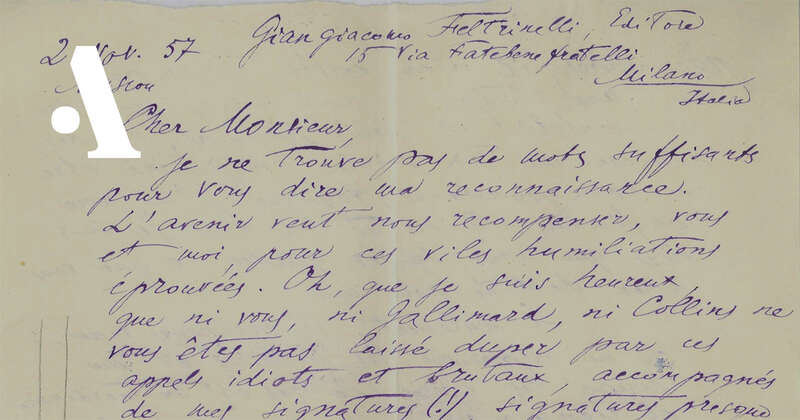 Giangiacomo Feltrinelli, Editore
2 Nov. 57 15 via Fatebenefratelli
Milano
Italia
Cher Monsieur,
je ne trouve pas de mots suffisants
pour vous dire ma reconnaissance.
L'avenir veut nous recompenser, vous
et moi, pour ces viles humiliations
éprouvées. Oh, que je suis heureux,
que ni vous, ni Gallimard, ni Collins ne
vous êtes pas laissé duper par ces
appels idiots et brutaux, accompagnés
de mes signatures (!) signatures presque